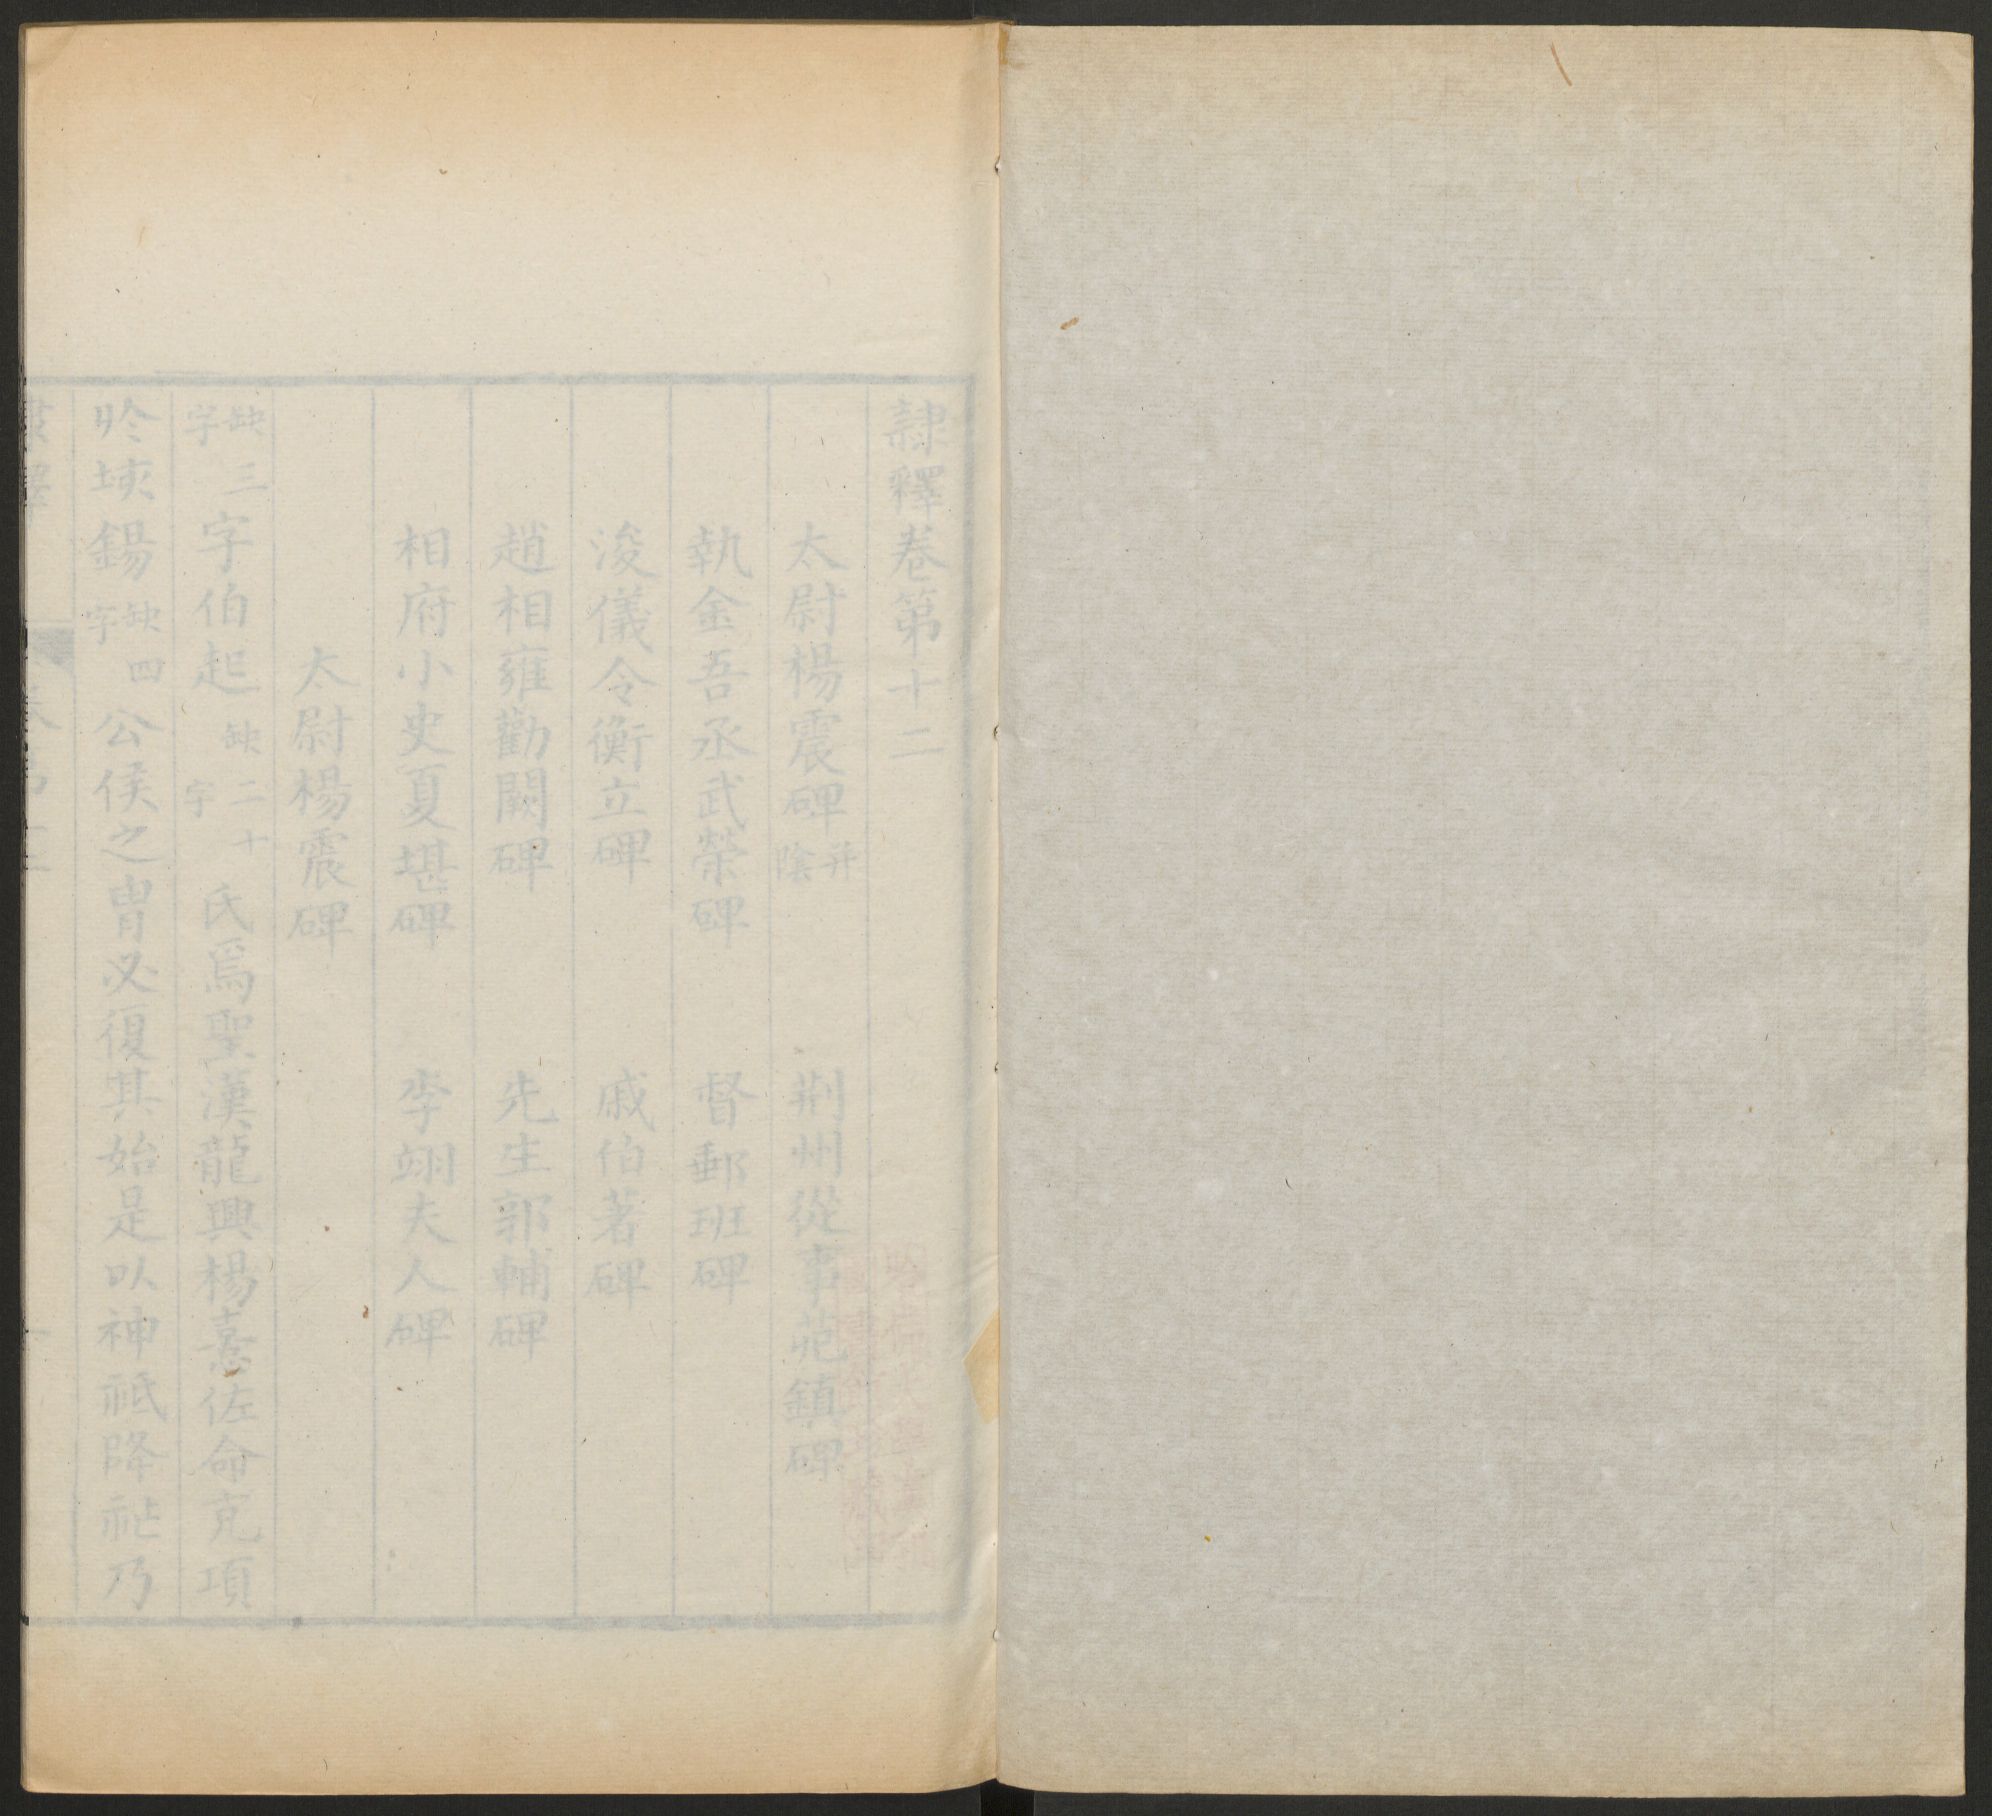 隸釋卷第十二
太尉楊震碑并陰 荊州從事苑鎮碑
執金吾丞武榮碑 督郵班碑
浚儀令衡立碑 戚伯著碑
趙相雍勸闕碑 先生郭輔碑
相府小史夏堪碑 李翊夫人碑
太尉楊震碑
缺三字字伯起缺二十字氏爲聖漢龍興楊憙佐命克項
於垓鍚缺四字公侯之胄必復其始是以神祇降祉乃
隸釋 卷第十二 一